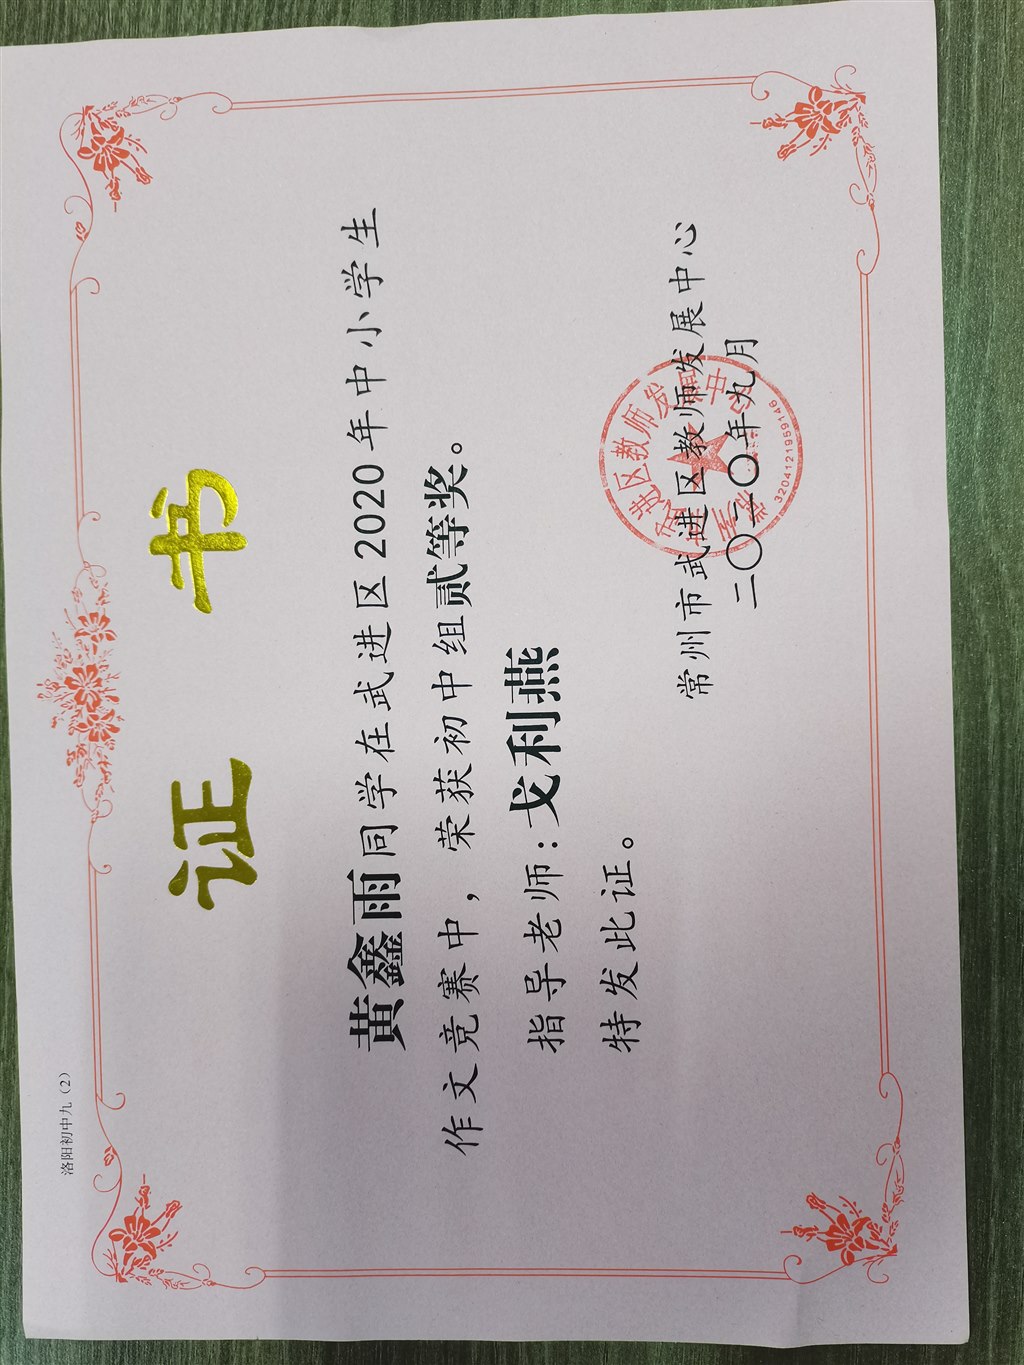 洛阳初中九（2）
证书
黄鑫雨同学在武进区2020年中小学生
作文竞赛中，荣获初中组贰等奖。
指导老师：戈利燕
特发此证。
常州市武进区教师发展中心
二〇二〇年九月
常州市武进区教师发展中心
3204121959146